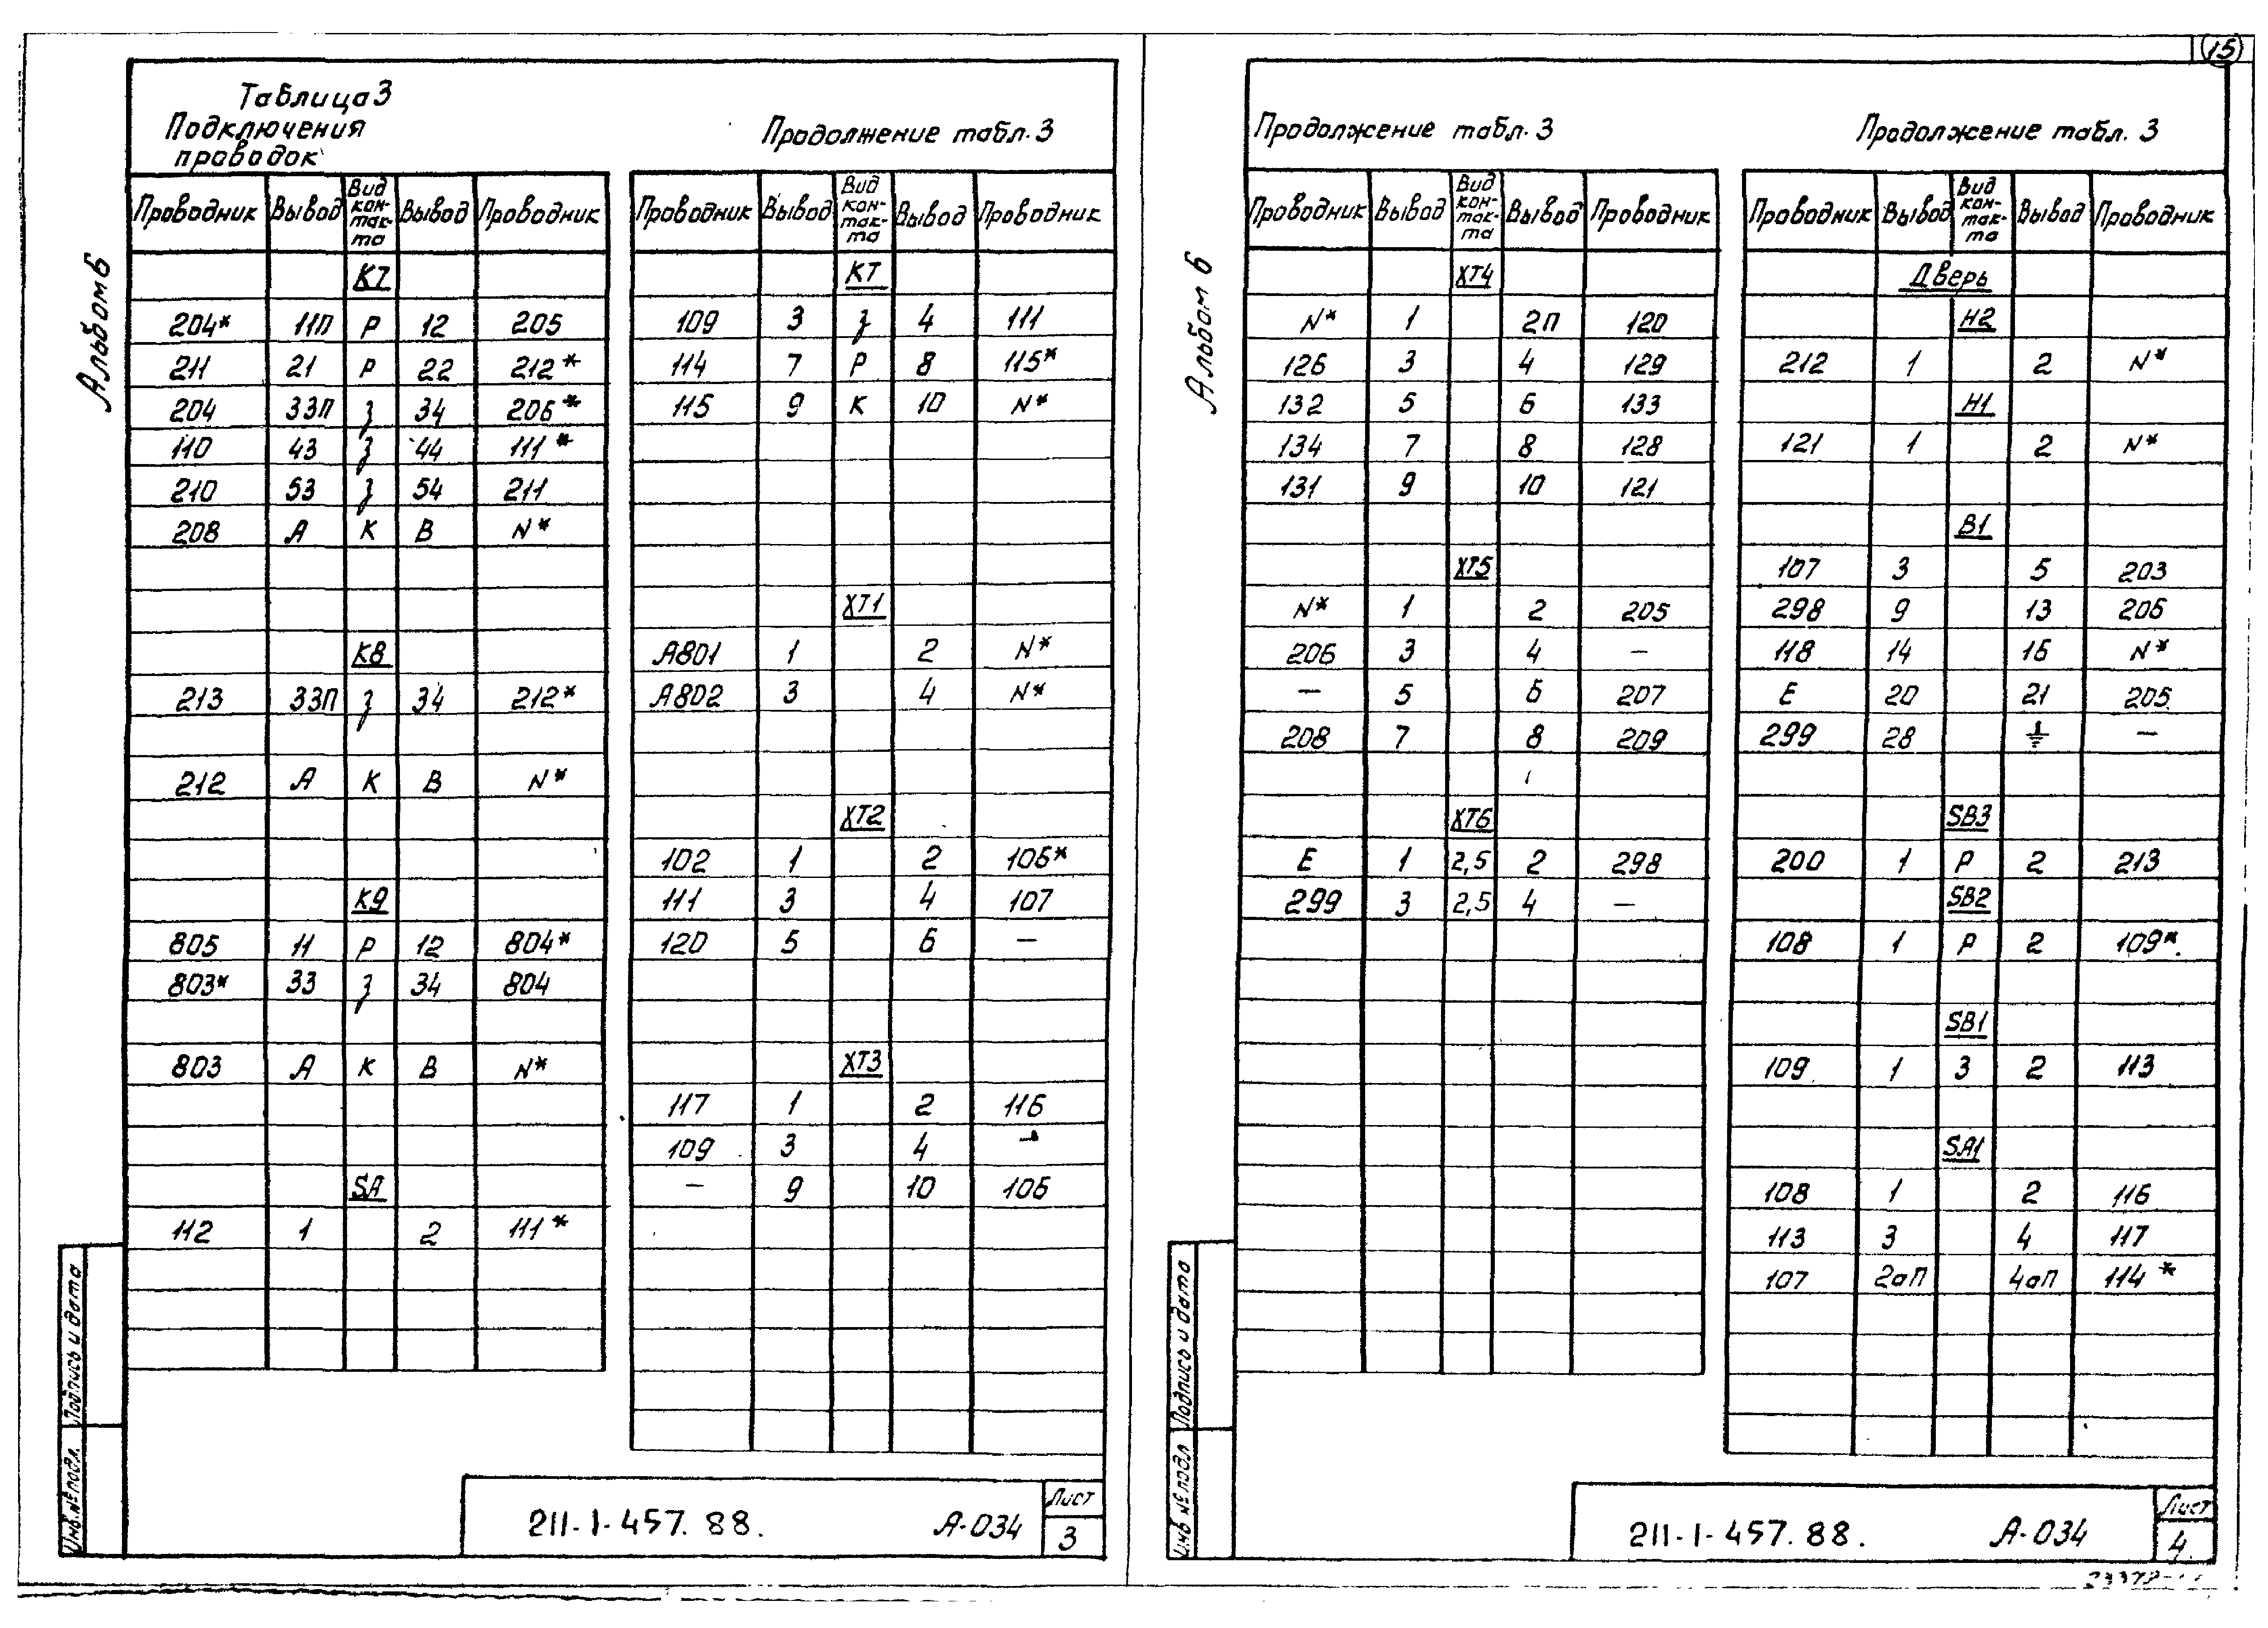 15
Альбом 6
Таблица 3
Подключения
проводок
Проводник Вывод Вид кон-так-та Вывод Проводник
К7
204* 11П Р 12 205
211 21 Р 22 212*
204 33П З 34 206*
110 43 З 44 111*
210 53 З 54 211
208 А К В N*
К8
213 33П З 34 212*
212 А К В N*
К9
805 11 Р 12 804*
803* 33 З 34 804
803 А К В N*
SA
112 1 2 111*
Продолжение табл. 3
Проводник Вывод Вид кон-так-та Вывод Проводник
КТ
109 3 З 4 111
114 7 Р 8 115*
115 9 К 10 N*
ХТ1
А801 1 2 N*
А802 3 4 N*
ХТ2
102 1 2 106*
111 3 4 107
120 5 6 —
ХТ3
117 1 2 116
109 3 4 —
— 9 10 106
Инв.№ подл. Подпись и дата
211-1-457.88. А-034
Лист
3
Альбом 6
Продолжение табл. 3
Проводник Вывод Вид кон-так-та Вывод Проводник
ХТ4
N* 1 2П 120
126 3 4 129
132 5 6 133
134 7 8 128
131 9 10 121
ХТ5
N* 1 2 205
206 3 4 —
— 5 6 207
208 7 8 209
ХТ6
Е 1 2,5 2 298
299 3 2,5 4 —
Продолжение табл. 3
Проводник Вывод Вид кон-так-та Вывод Проводник
Дверь
Н2
212 1 2 N*
Н1
121 1 2 N*
В1
107 3 5 203
298 9 13 206
118 14 16 N*
Е 20 21 205
299 28 ⏚ —
SB3
200 1 Р 2 213
SB2
108 1 Р 2 109*
SB1
109 1 З 2 113
SA1
108 1 2 116
113 3 4 117
107 2аП 4аП 114*
Инв.№ подл Подпись и дата
211-1-457.88. А-034
Лист
4